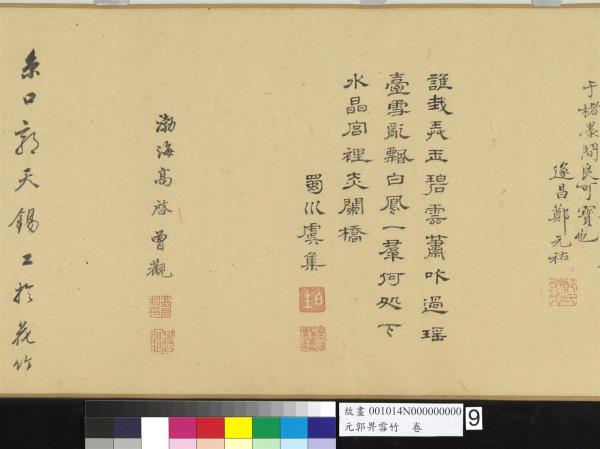 于楮墨間良可寶也
遂昌鄭元祐
誰哉弄玉碧雲蕭吹過瑤
臺雪亂飄白鳳一羣何処下
水晶宮裡赤闌橋
蜀川虞集
渤海高啓曾觀
京口郭天錫工於花竹
故畫 001014N000000000
元郭畀雪竹 卷
9